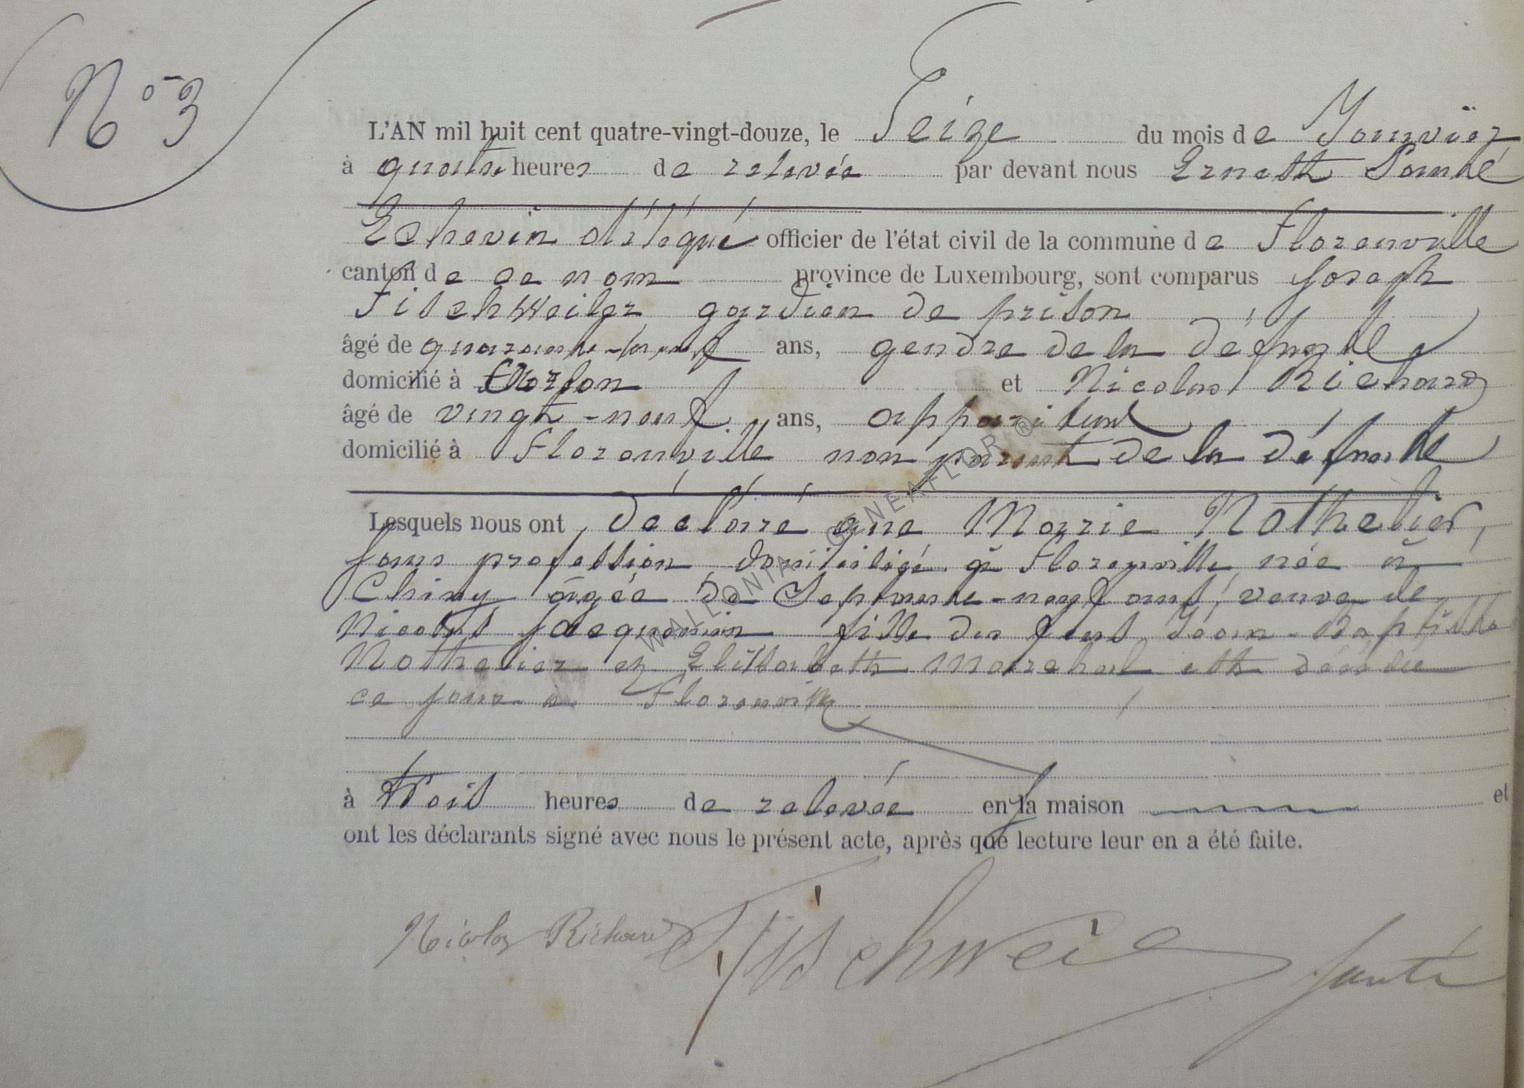 N° 3
L'AN mil huit cent quatre-vingt-douze, le Seize du mois de Janvier
à quatre heures de relevée par devant nous Ernest Santé
Echevin délégué officier de l'état civil de la commune de Florenville
canton de ce nom province de Luxembourg, sont comparus Joseph
Fischweiler gardien de prison
âgé de quarante-neuf ans, gendre de la défunte
domicilié à Arlon et Nicolas Richard
âgé de vingt-neuf ans, appariteur
domicilié à Florenville non parent de la défunte
Lesquels nous ont déclaré que Marie Nothelier,
sans profession domiciliée à Florenville née à
Chiny âgée de Septante-neuf ans, veuve de
Nicolas Jacquemin fille des feus Jean-Baptiste
Nothelier et Elisabeth Marechal est décédée
ce jour à Florenville
à trois heures de relevée en sa maison et
ont les déclarants signé avec nous le présent acte, après que lecture leur en a été faite.
Nicolas Richard Fischweile Santé
WALLONIA GENEAFLOR ®